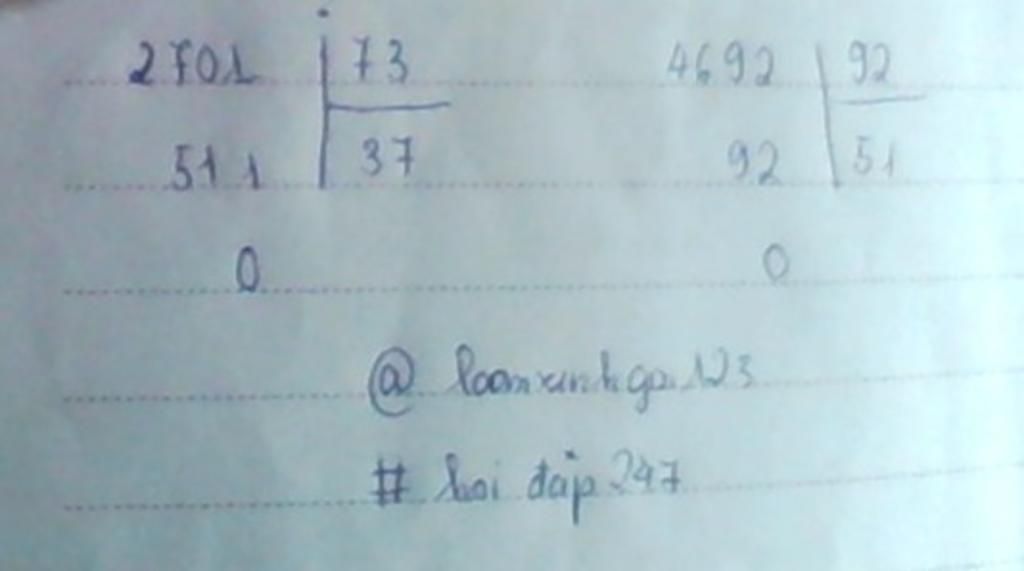 2701 73 4692 92
511 37 92 51
0 0
@ loanxinhgai123
# hoi đáp 247